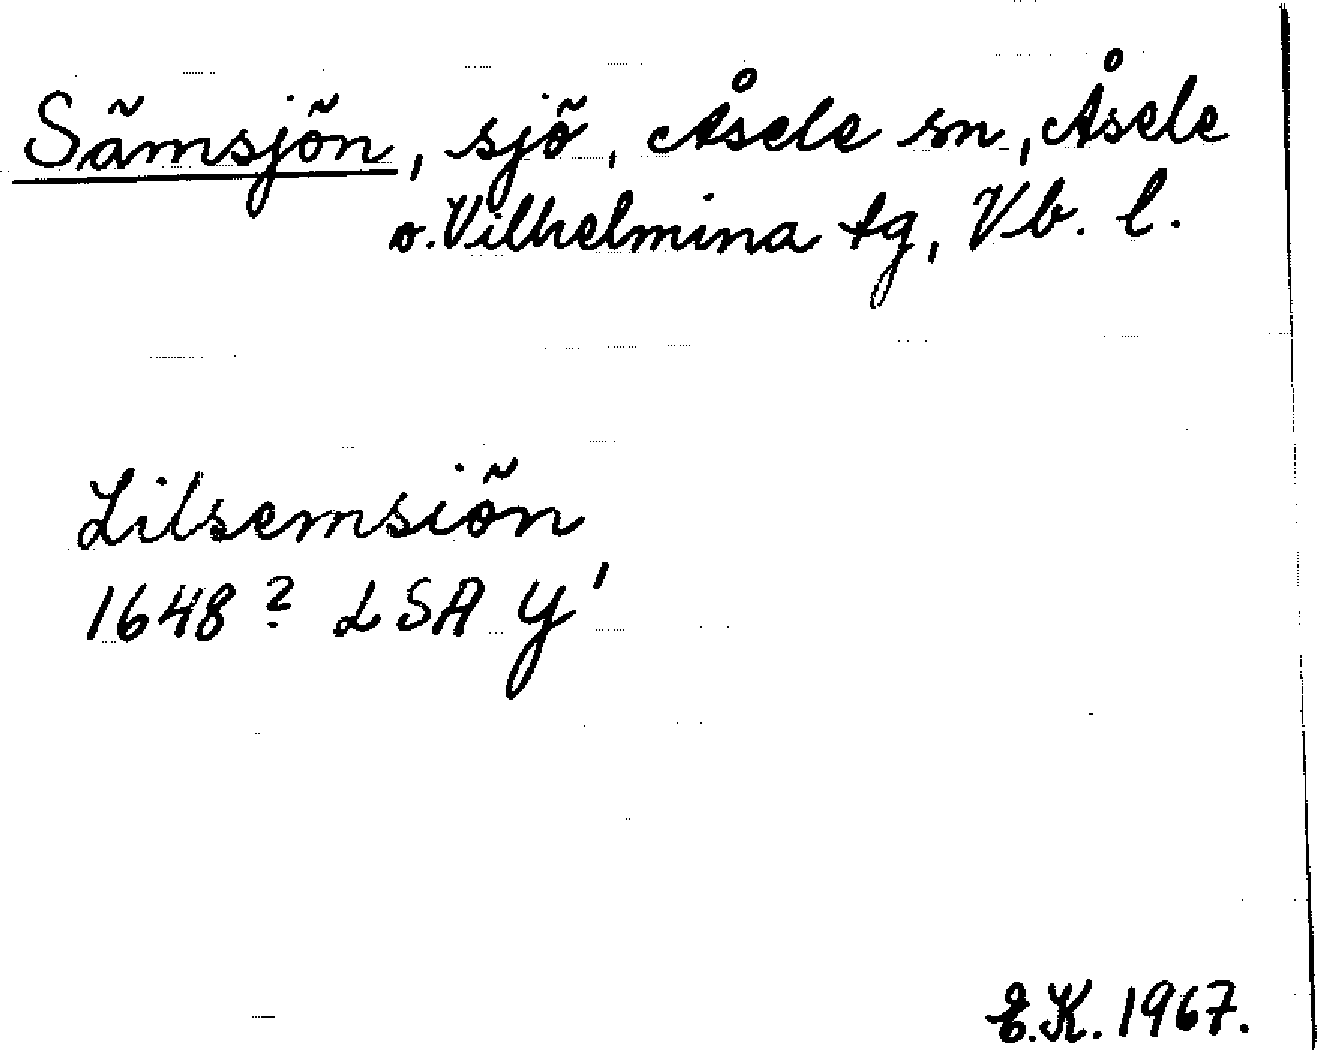 Sämsjön, sjö, Åsele sn, Åsele
o. Vilhelmina tg, Vb. l.
Lilsemsiön
1648? LSA Y'
E.K. 1967.